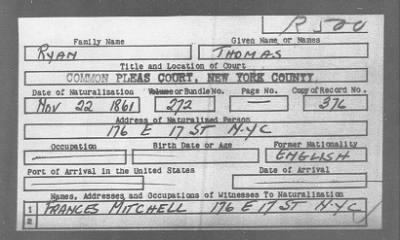 R 500
Family Name Given Name or Names
RYAN THOMAS
Title and Location of Court
COMMON PLEAS COURT, NEW YORK COUNTY
Date of Naturalization Volume or Bundle No. Page No. Copy of Record No.
NOV 22 1861 272 — 376
Address of Naturalized Person
176 E 17 ST N.Y.C
Occupation Birth Date or Age Former Nationality
— — ENGLISH
Port of Arrival in the United States Date of Arrival
— —
Names, Addresses and Occupations of Witnesses To Naturalization
1 FRANCES MITCHELL 176 E 17 ST N.Y.C
2